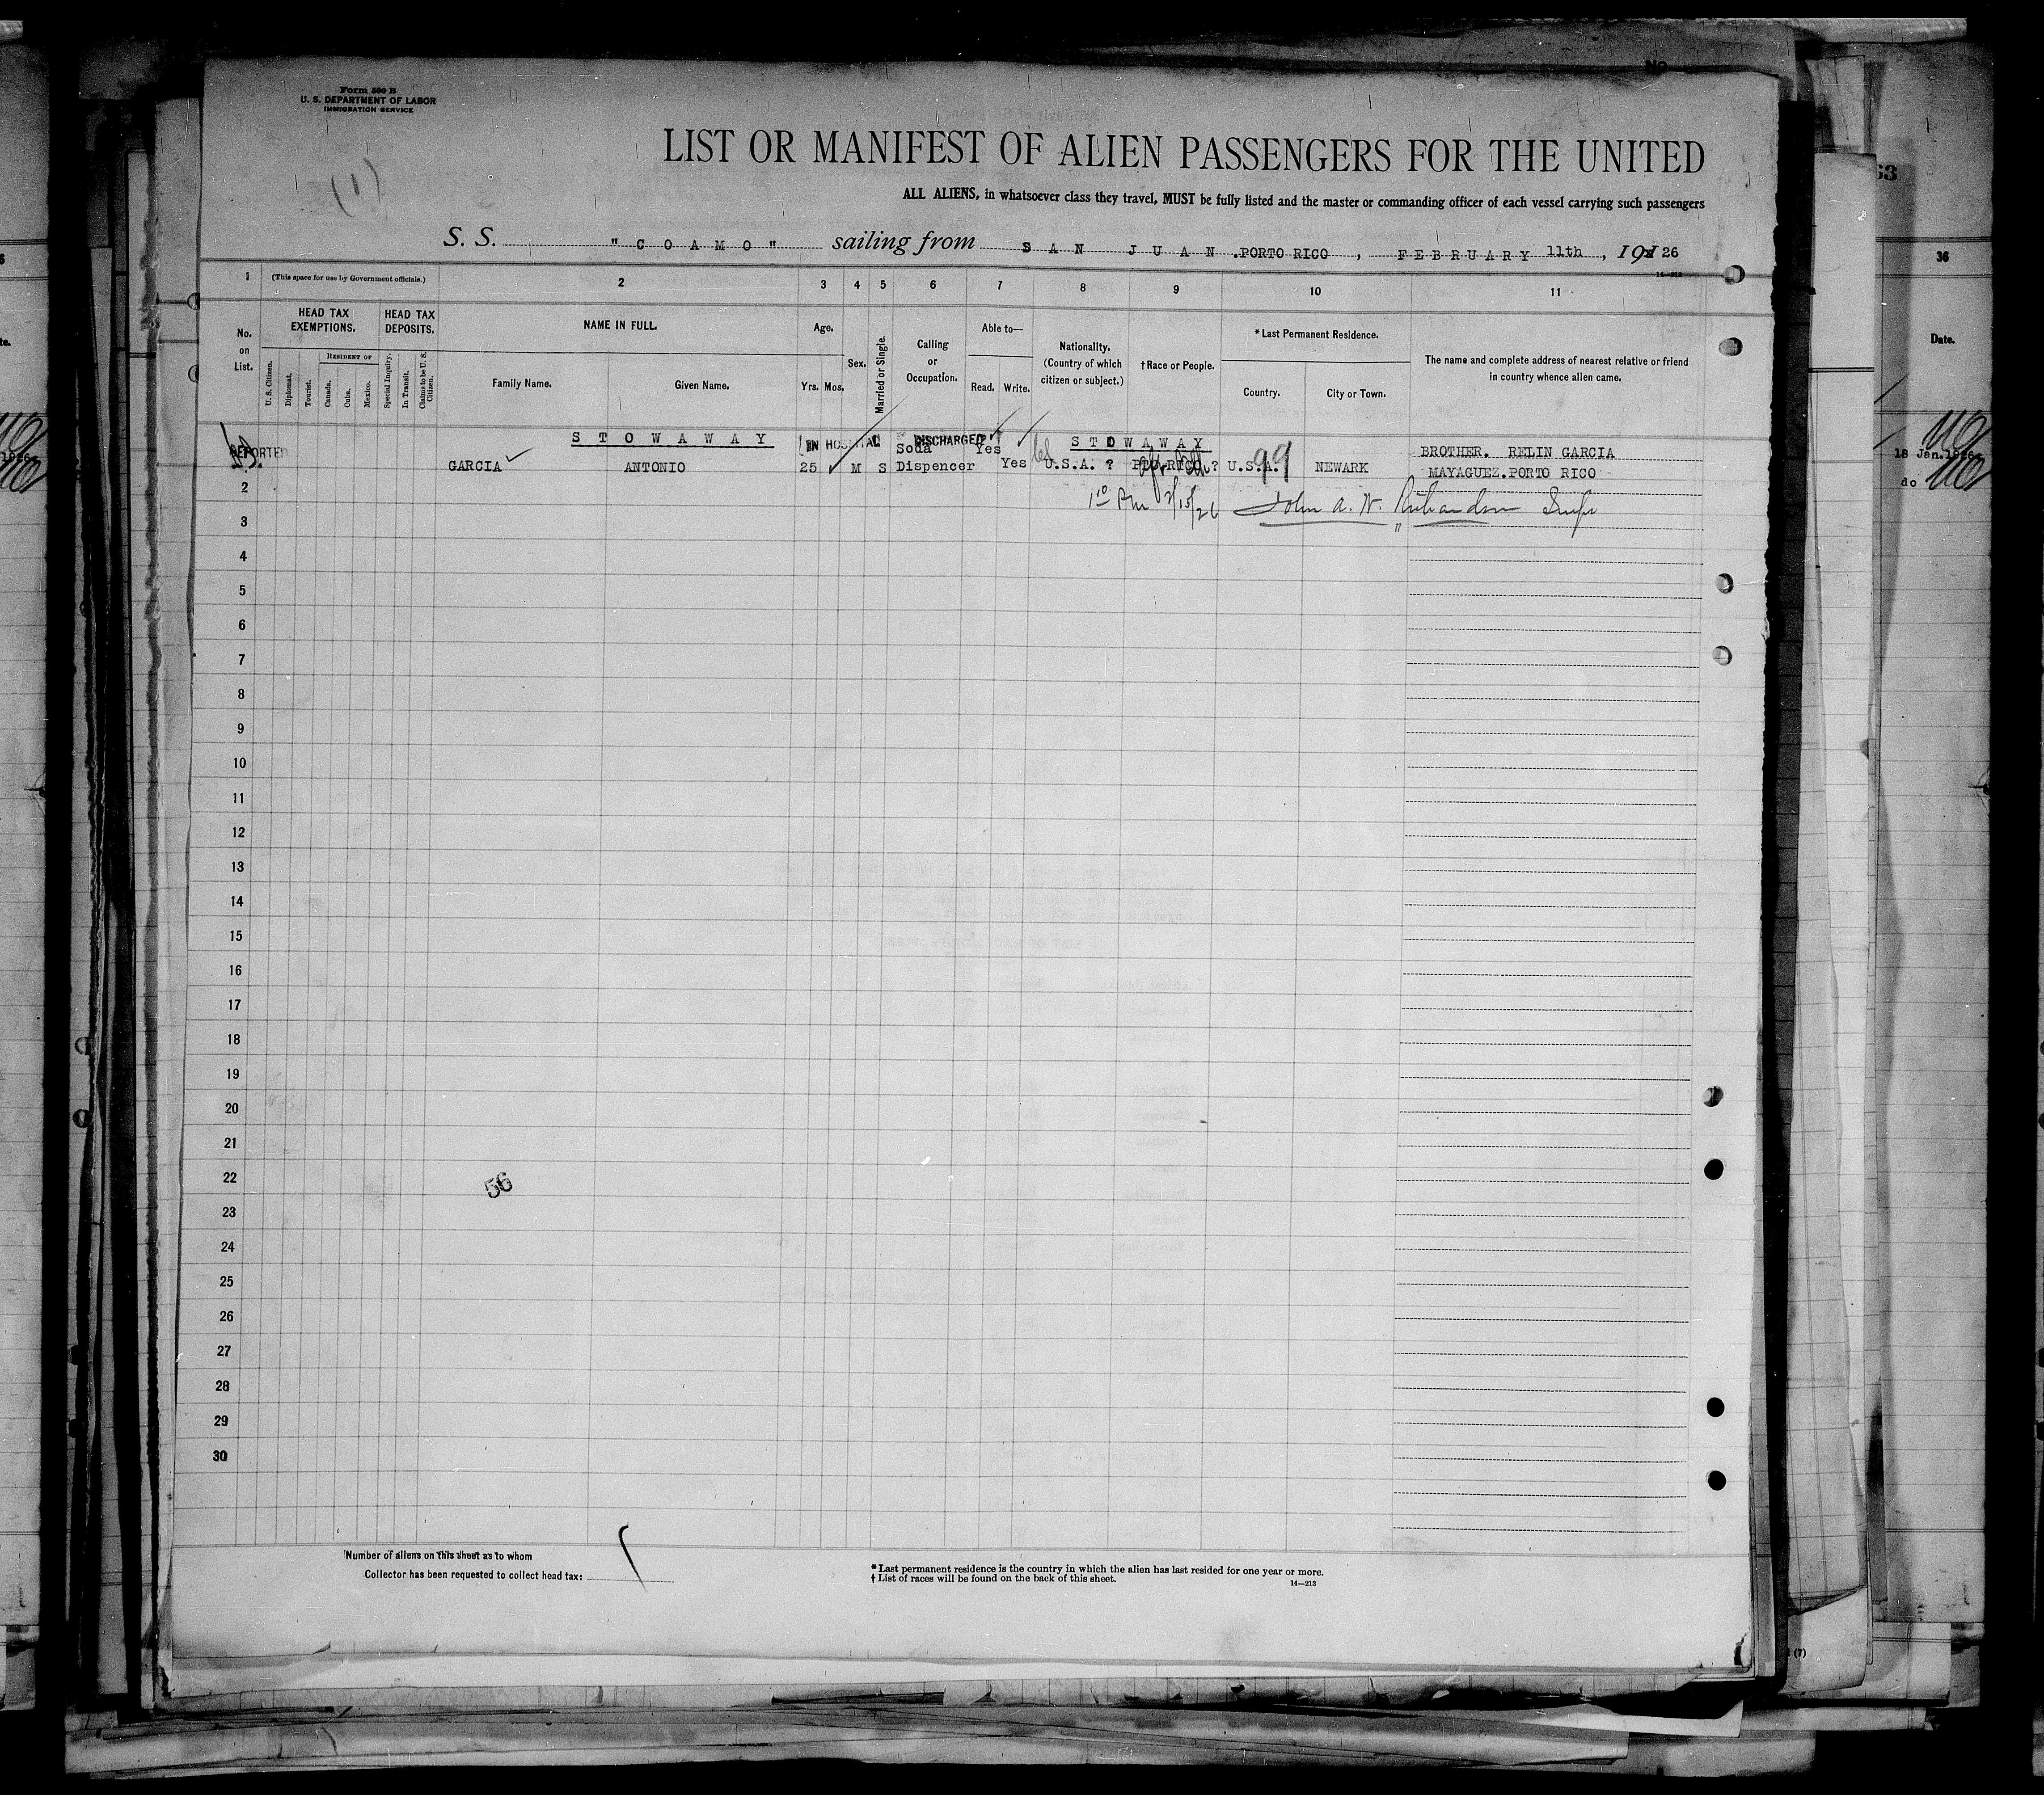 Form 500 B
U. S. DEPARTMENT OF LABOR
IMMIGRATION SERVICE
(1)
LIST OR MANIFEST OF ALIEN PASSENGERS FOR THE UNITED
ALL ALIENS, in whatsoever class they travel, MUST be fully listed and the master or commanding officer of each vessel carrying such passengers
S. S. "COAMO" sailing from SAN JUAN.PORTO RICO, FEBRUARY 11th, 191 26
14—213
1 (This space for use by Government officials.) 2 3 4 5 6 7 8 9 10 11
No. on List.
HEAD TAX EXEMPTIONS.
HEAD TAX DEPOSITS.
U. S. Citizen.
Diplomat.
Tourist.
RESIDENT OF
Canada.
Cuba.
Mexico.
Special Inquiry.
In Transit.
Claims to be U. S. Citizen.
NAME IN FULL.
Family Name.
Given Name.
Age.
Yrs. Mos.
Sex.
Married or Single.
Calling or Occupation.
Able to—
Read. Write.
Nationality. (Country of which citizen or subject.)
†Race or People.
*Last Permanent Residence.
Country.
City or Town.
The name and complete address of nearest relative or friend in country whence alien came.
STOWAWAY IN HOSPITAL DISCHARGED STOWAWAY
REPORTED
GARCIA ANTONIO 25 M S Soda Dispencer Yes Yes U.S.A. ? PTO RICO ? U.S.A. NEWARK BROTHER. RELIN GARCIA
MAYAGUEZ.PORTO RICO
99
2
2/15/26 John A. W. Richardson
3
4
5
6
7
8
9
10
11
12
13
14
15
16
17
18
19
20
21
22
56
23
24
25
26
27
28
29
30
Number of aliens on this sheet as to whom
Collector has been requested to collect head tax:
*Last permanent residence is the country in which the alien has last resided for one year or more.
†List of races will be found on the back of this sheet.
14—213
36
Date.
18 Jan.1926
do
(7)